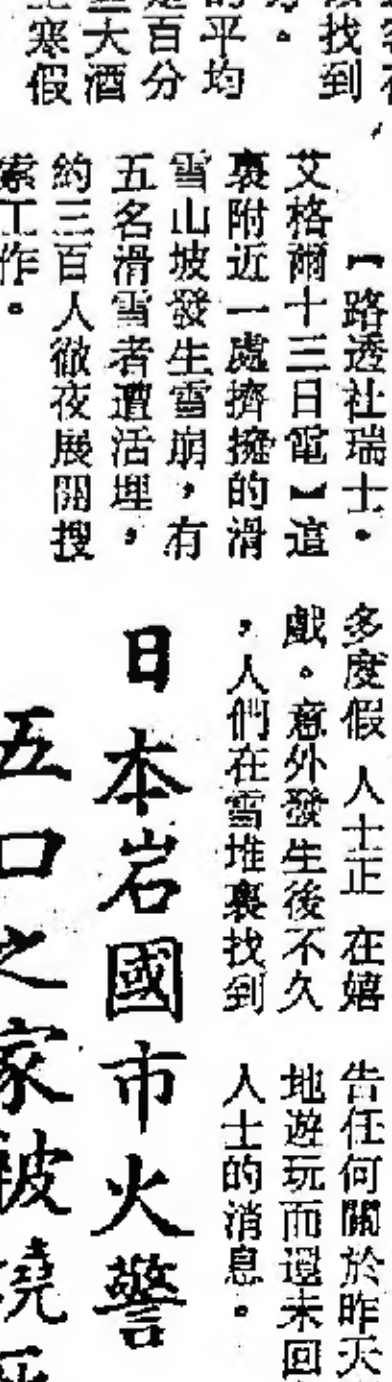 找到
。
的平均
百分
大酒
寒假
【路透社瑞士・
艾格爾十三日電】這
裏附近一處擠擁的滑
雪山坡發生雪崩，有
五名滑雪者遭活埋，
約三百人徹夜展開搜
索工作。
多度假人士正在嬉
戲。意外發生後不久
，人們在雪堆裏找到
告任何關於昨天
地遊玩而還未回
人士的消息。
日本岩國市火警
五口之家被燒死